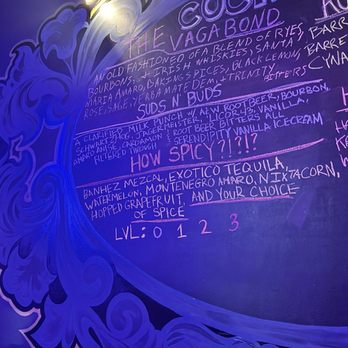 THE
VAGABOND
AN OLD FASHIONED OF A BLEND OF RYES,
BOURBONS, + IRISH WHISKIES, SANTA
MARIA AMARO, BAKING SPICES, BLACK LEMON,
ROSE, SAGE, YERBA MATE
TRINITY
BITTERS
SUDS N BUDS
A CLARIFIED MILK PUNCH W/ ROOT BEER, BOURBON,
JAGERMEISTER, LICORICE, VANILLA,
ROOT BEER BITTERS ALL
FILTERED THROUGH SERENDIPITY VANILLA ICECREAM
HOW SPICY?!?!?
BANHEZ MEZCAL, EXOTICO TEQUILA,
WATERMELON, MONTENEGRO AMARO, NIXTACORN,
HOPPED GRAPEFRUIT, AND YOUR CHOICE
OF SPICE
LVL: 0 1 2 3
BARR
BARRE
CYNA